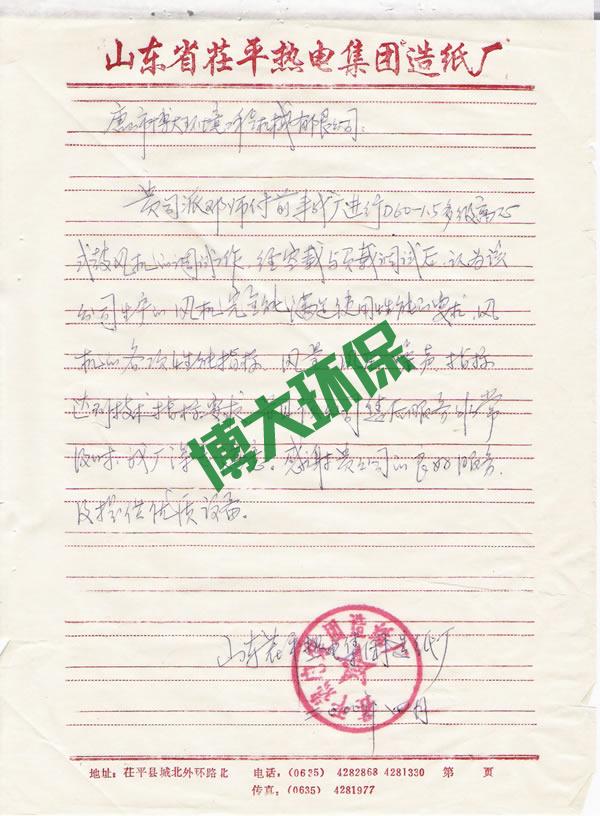 山东省茌平热电集团造纸厂
唐山市博大环境工程机械有限公司:
贵司派邓师付前来我厂进行D60-1.5多级离心
式鼓风机的调试工作,经空载与负载调试后,认为该
公司生产的风机完全能满足使用性能的要求,风
机的各项性能指标,风量 噪声指标
达到技术指标要求 售后服务非常
及时,我厂深 感谢贵公司的良好服务
及提供优质设备。
博大环保
山东茌平热电集团造纸厂
四月
地址:茌平县城北外环路北 电话:(0635) 4282868 4281330 第 页
传真:(0635) 4281977